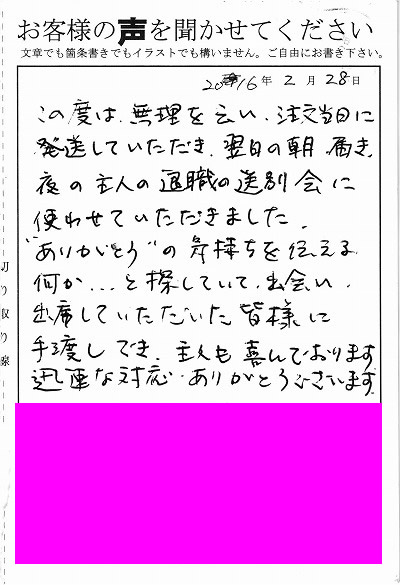 お客様の声を聞かせてください
文章でも箇条書きでもイラストでも構いません。ご自由にお書き下さい。
2016年2月28日
この度は、無理を云い、注文当日に
発送していただき、翌日の朝、届き、
夜の主人の退職の送別会に
使わせていただきました。
"ありがとう"の気持ちを伝える
何か...と探していて、出会い、
出席していただいた皆様に
手渡しでき、主人も喜んでおります
迅速な対応、ありがとうございます
切り取り線